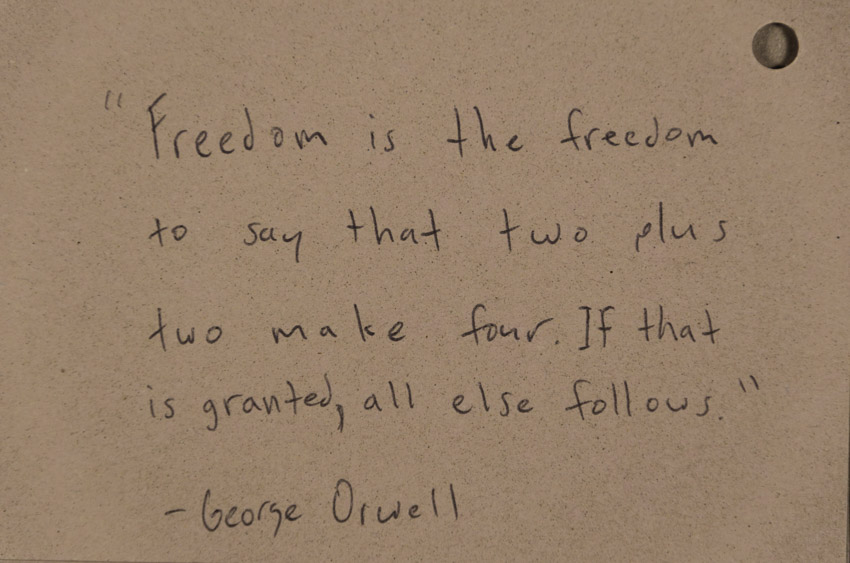 "Freedom is the freedom
to say that two plus
two make four. If that
is granted, all else follows."
- George Orwell